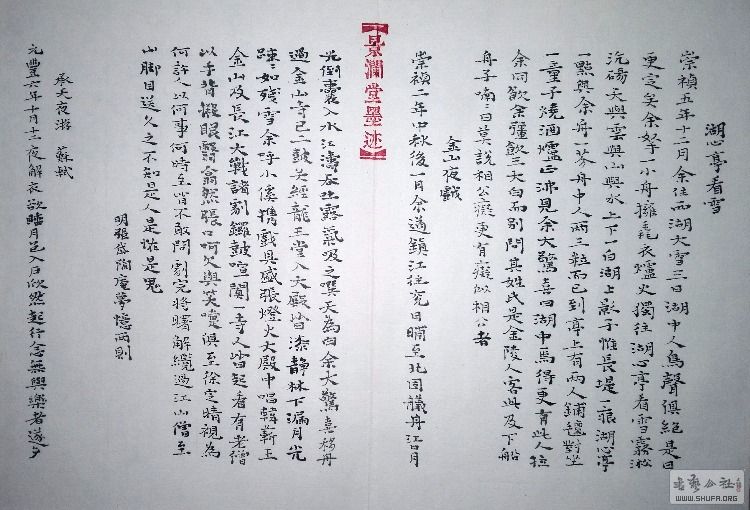 湖心亭看雪
崇禎五年十二月余住西湖大雪三日湖中人鳥聲俱絕是日
更定矣余拏一小舟擁毳衣爐火獨往湖心亭看雪霧淞
沆碭天與雲與山與水上下一白湖上影子惟長堤一痕湖心亭
一點與余舟一芥舟中人兩三粒而已到亭上有兩人鋪氈對坐
一童子燒酒爐正沸見余大驚喜曰湖中焉得更有此人拉
余同飲余彊飲三大白而別問其姓氏是金陵人客此及下船
舟子喃曰莫說相公癡更有癡似相公者
金山夜戲
崇禎二年中秋後一日余道鎮江往兗日晡至北固艤舟江口月
【景瀾堂墨迹】
光倒囊入水江濤吞吐露氣吸之噀天為白余大驚喜移舟
過金山寺已二鼓矣經龍王堂入大殿皆漆靜林下漏月光
疎疎如殘雪余呼小傒攜戲具盛張燈火大殿中唱韓蘄王
金山及長江大戰諸劇鑼鼓喧闐一寺人皆起看有老僧
以手背摋眼翳翕然張口呵欠與笑嚏俱至徐定睛視為
何許人以何事何時至皆不敢問劇完將曙解纜過江山僧至
山腳目送久之不知是人是怪是鬼
明張岱陶庵夢憶兩則
承天夜游 蘇軾
元豐六年十月十二夜解衣欲睡月色入戶欣然起行念無與樂者遂
書藝公社
WWW.SHUFA.ORG